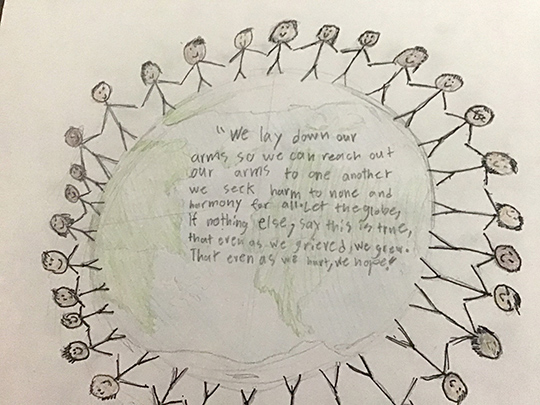 "We lay down our
arms so we can reach out
our arms to one another
we seek harm to none and
harmony for all. Let the globe,
If nothing else, say this is true,
that even as we grieved, we grew.
That even as we hurt, we hope."